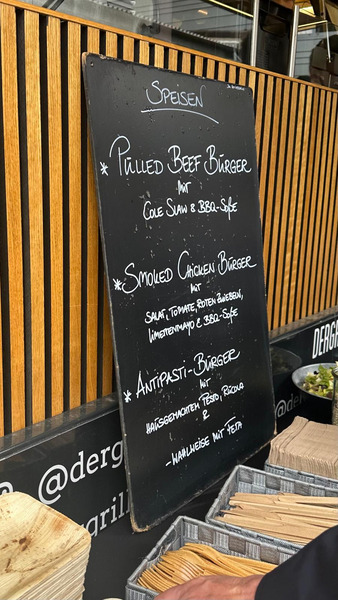 SPEISEN
* PULLED BEEF BÜRGER
MIT
COLE SLAW & BBQ-SOßE
* SMOKED CHICKEN BÜRGER
MIT
SALAT, TOMATE, ROTEN ZWIEBELN,
LIMETTENMAYO & BBQ-SOßE
* ANTIPASTI-BÜRGER
MIT
HAUSGEMACHTEN PESTO, RUCOLA
&
-WAHLWEISE MIT FETA
DERGR
@derg
@de
rgrill